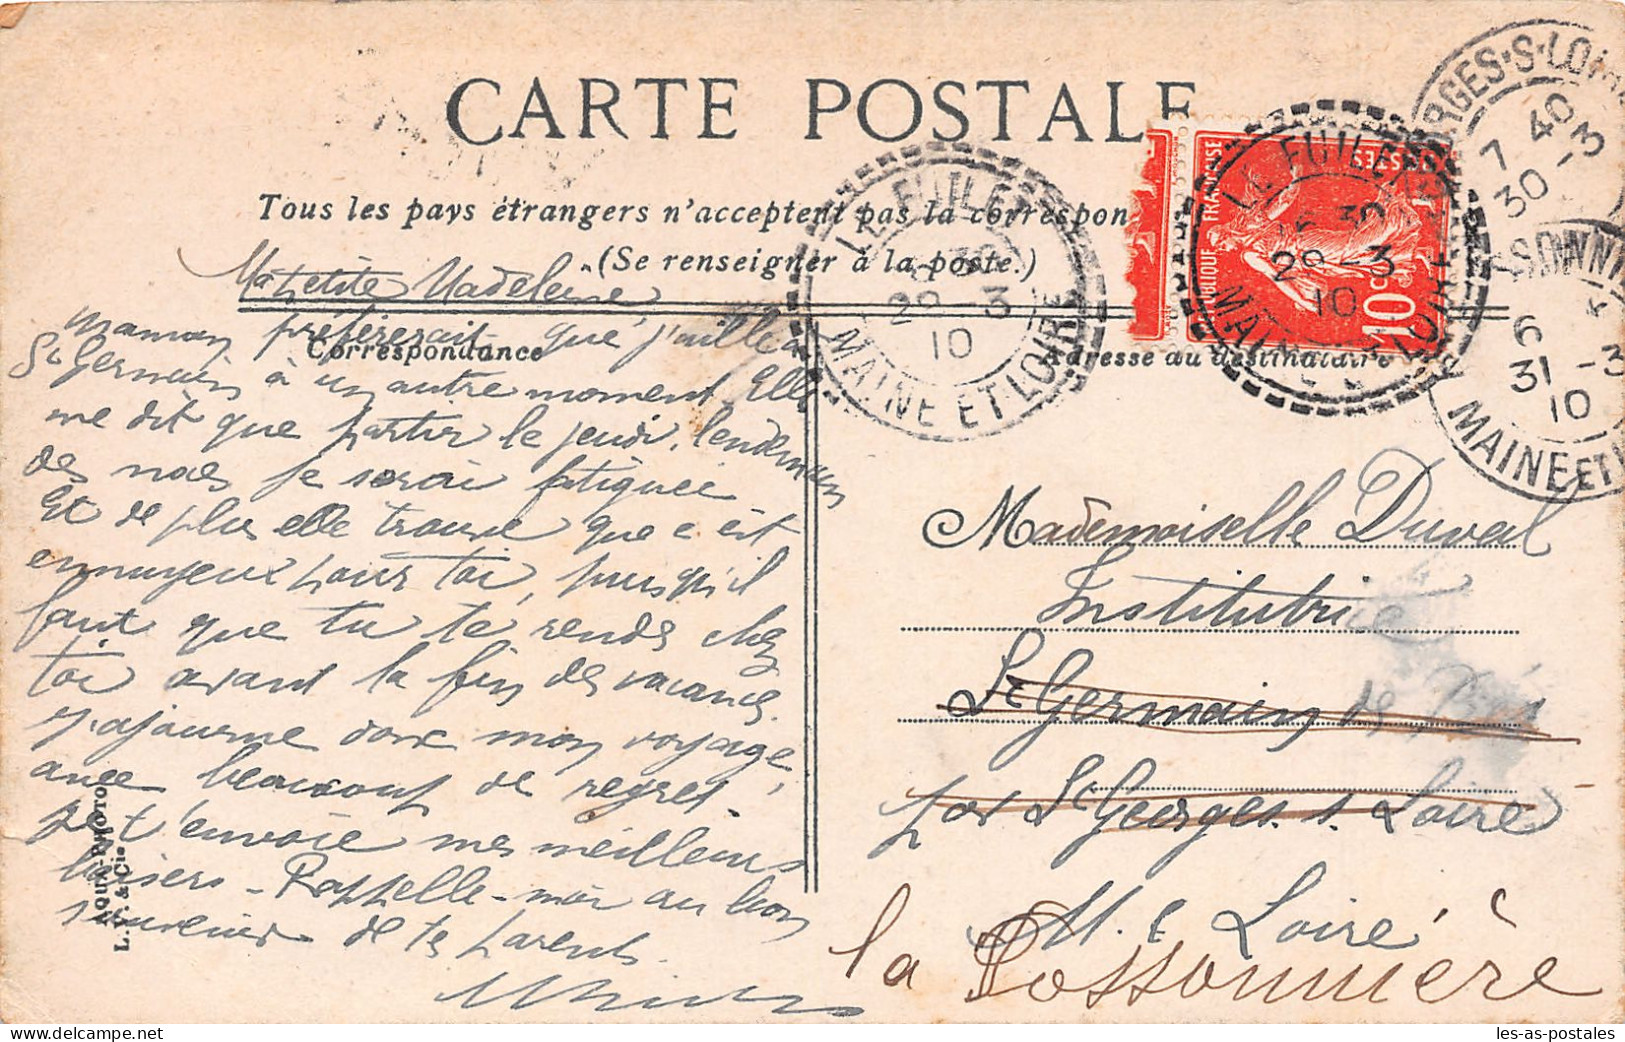 CARTE POSTALE
Tous les pays étrangers n'acceptent pas la correspon
(Se renseigner à la poste.)
Correspondance
Adresse au destinataire
Ma petite Madeleine
maman préférerait que j'aille à
St Germain à un autre moment. Elle
me dit que partir le jeudi, lendemain
des noces je serai fatiguée
Et de plus elle trouve que c'est
ennuyeux pour toi, puisqu'il
faut que tu te rendes chez
toi avant la fin des vacances.
J'ajourne donc mon voyage,
avec beaucoup de regret.
Je t'envoie mes meilleurs
baisers - Rappelle-moi au bon
souvenir de tes parents.
L. V. & Cie
AQUA-PHOTO
LE FUILET
29 -3
10
MAINE ET LOIRE
LE FUILET
29 -3
10
MAINE ET LOIRE
RGES-S-LOIRE
7 40
30 -3
6
31 -3
10
MAINE ET L
RÉPUBLIQUE FRANÇAISE
POSTES
10 c
Mademoiselle Duval
Institutrice
St Germain des Prés
par St Georges s. Loire
M. & Loire
la Possonnière
les-as-postales
https://www.delcampe.net